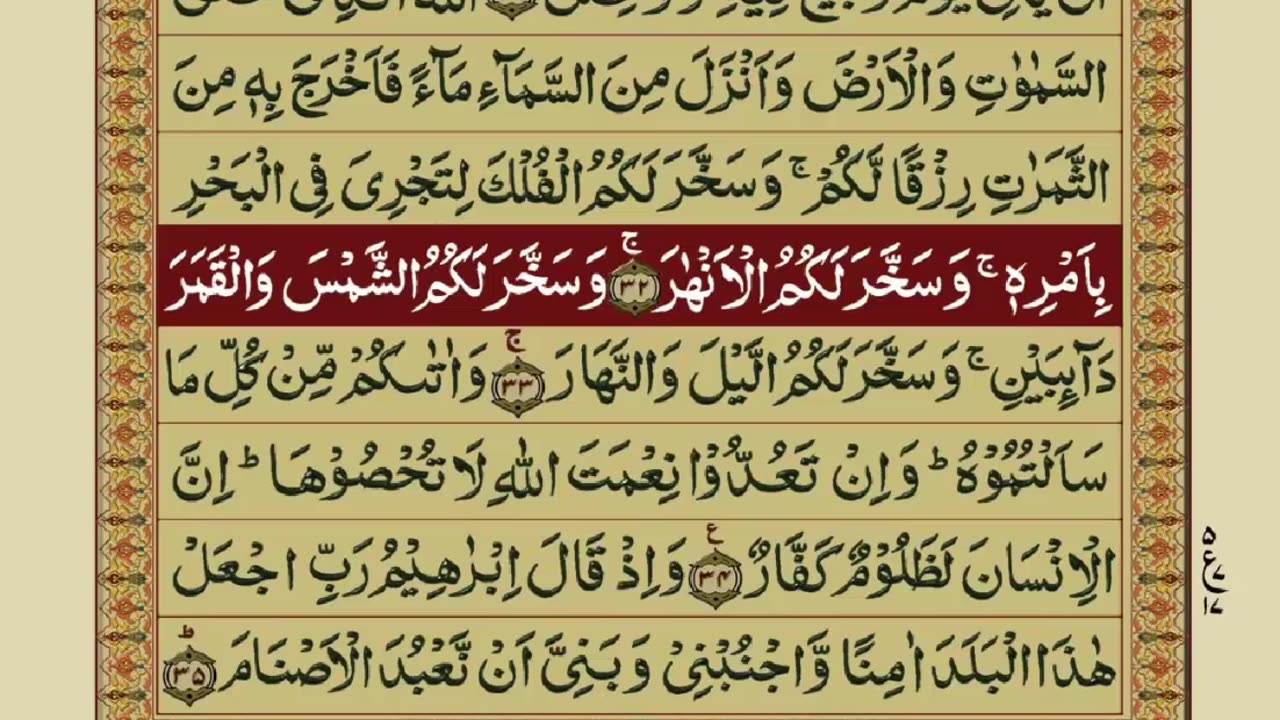 السَّمٰوٰتِ وَالْاَرْضَ وَاَنْزَلَ مِنَ السَّمَآءِ مَآءً فَاَخْرَجَ بِهٖ مِنَ
الثَّمَرٰتِ رِزْقًا لَّكُمْ ۚ وَسَخَّرَ لَكُمُ الْفُلْكَ لِتَجْرِىَ فِى الْبَحْرِ
بِاَمْرِهٖ ۚ وَسَخَّرَ لَكُمُ الْاَنْهٰرَ ۚ ﴿۳۲﴾ وَسَخَّرَ لَكُمُ الشَّمْسَ وَالْقَمَرَ
دَآئِبَيْنِ ۚ وَسَخَّرَ لَكُمُ الَّيْلَ وَالنَّهَارَ ۚ ﴿۳۳﴾ وَاٰتٰىكُمْ مِّنْ كُلِّ مَا
سَاَلْتُمُوْهُ ؕ وَاِنْ تَعُدُّوْا نِعْمَتَ اللّٰهِ لَا تُحْصُوْهَا ؕ اِنَّ
الْاِنْسَانَ لَظَلُوْمٌ كَفَّارٌ ﴿۳۴﴾ ع وَاِذْ قَالَ اِبْرٰهِيْمُ رَبِّ اجْعَلْ
هٰذَا الْبَلَدَ اٰمِنًا وَّاجْنُبْنِىْ وَبَنِىَّ اَنْ نَّعْبُدَ الْاَصْنَامَ ؕ ﴿۳۵﴾